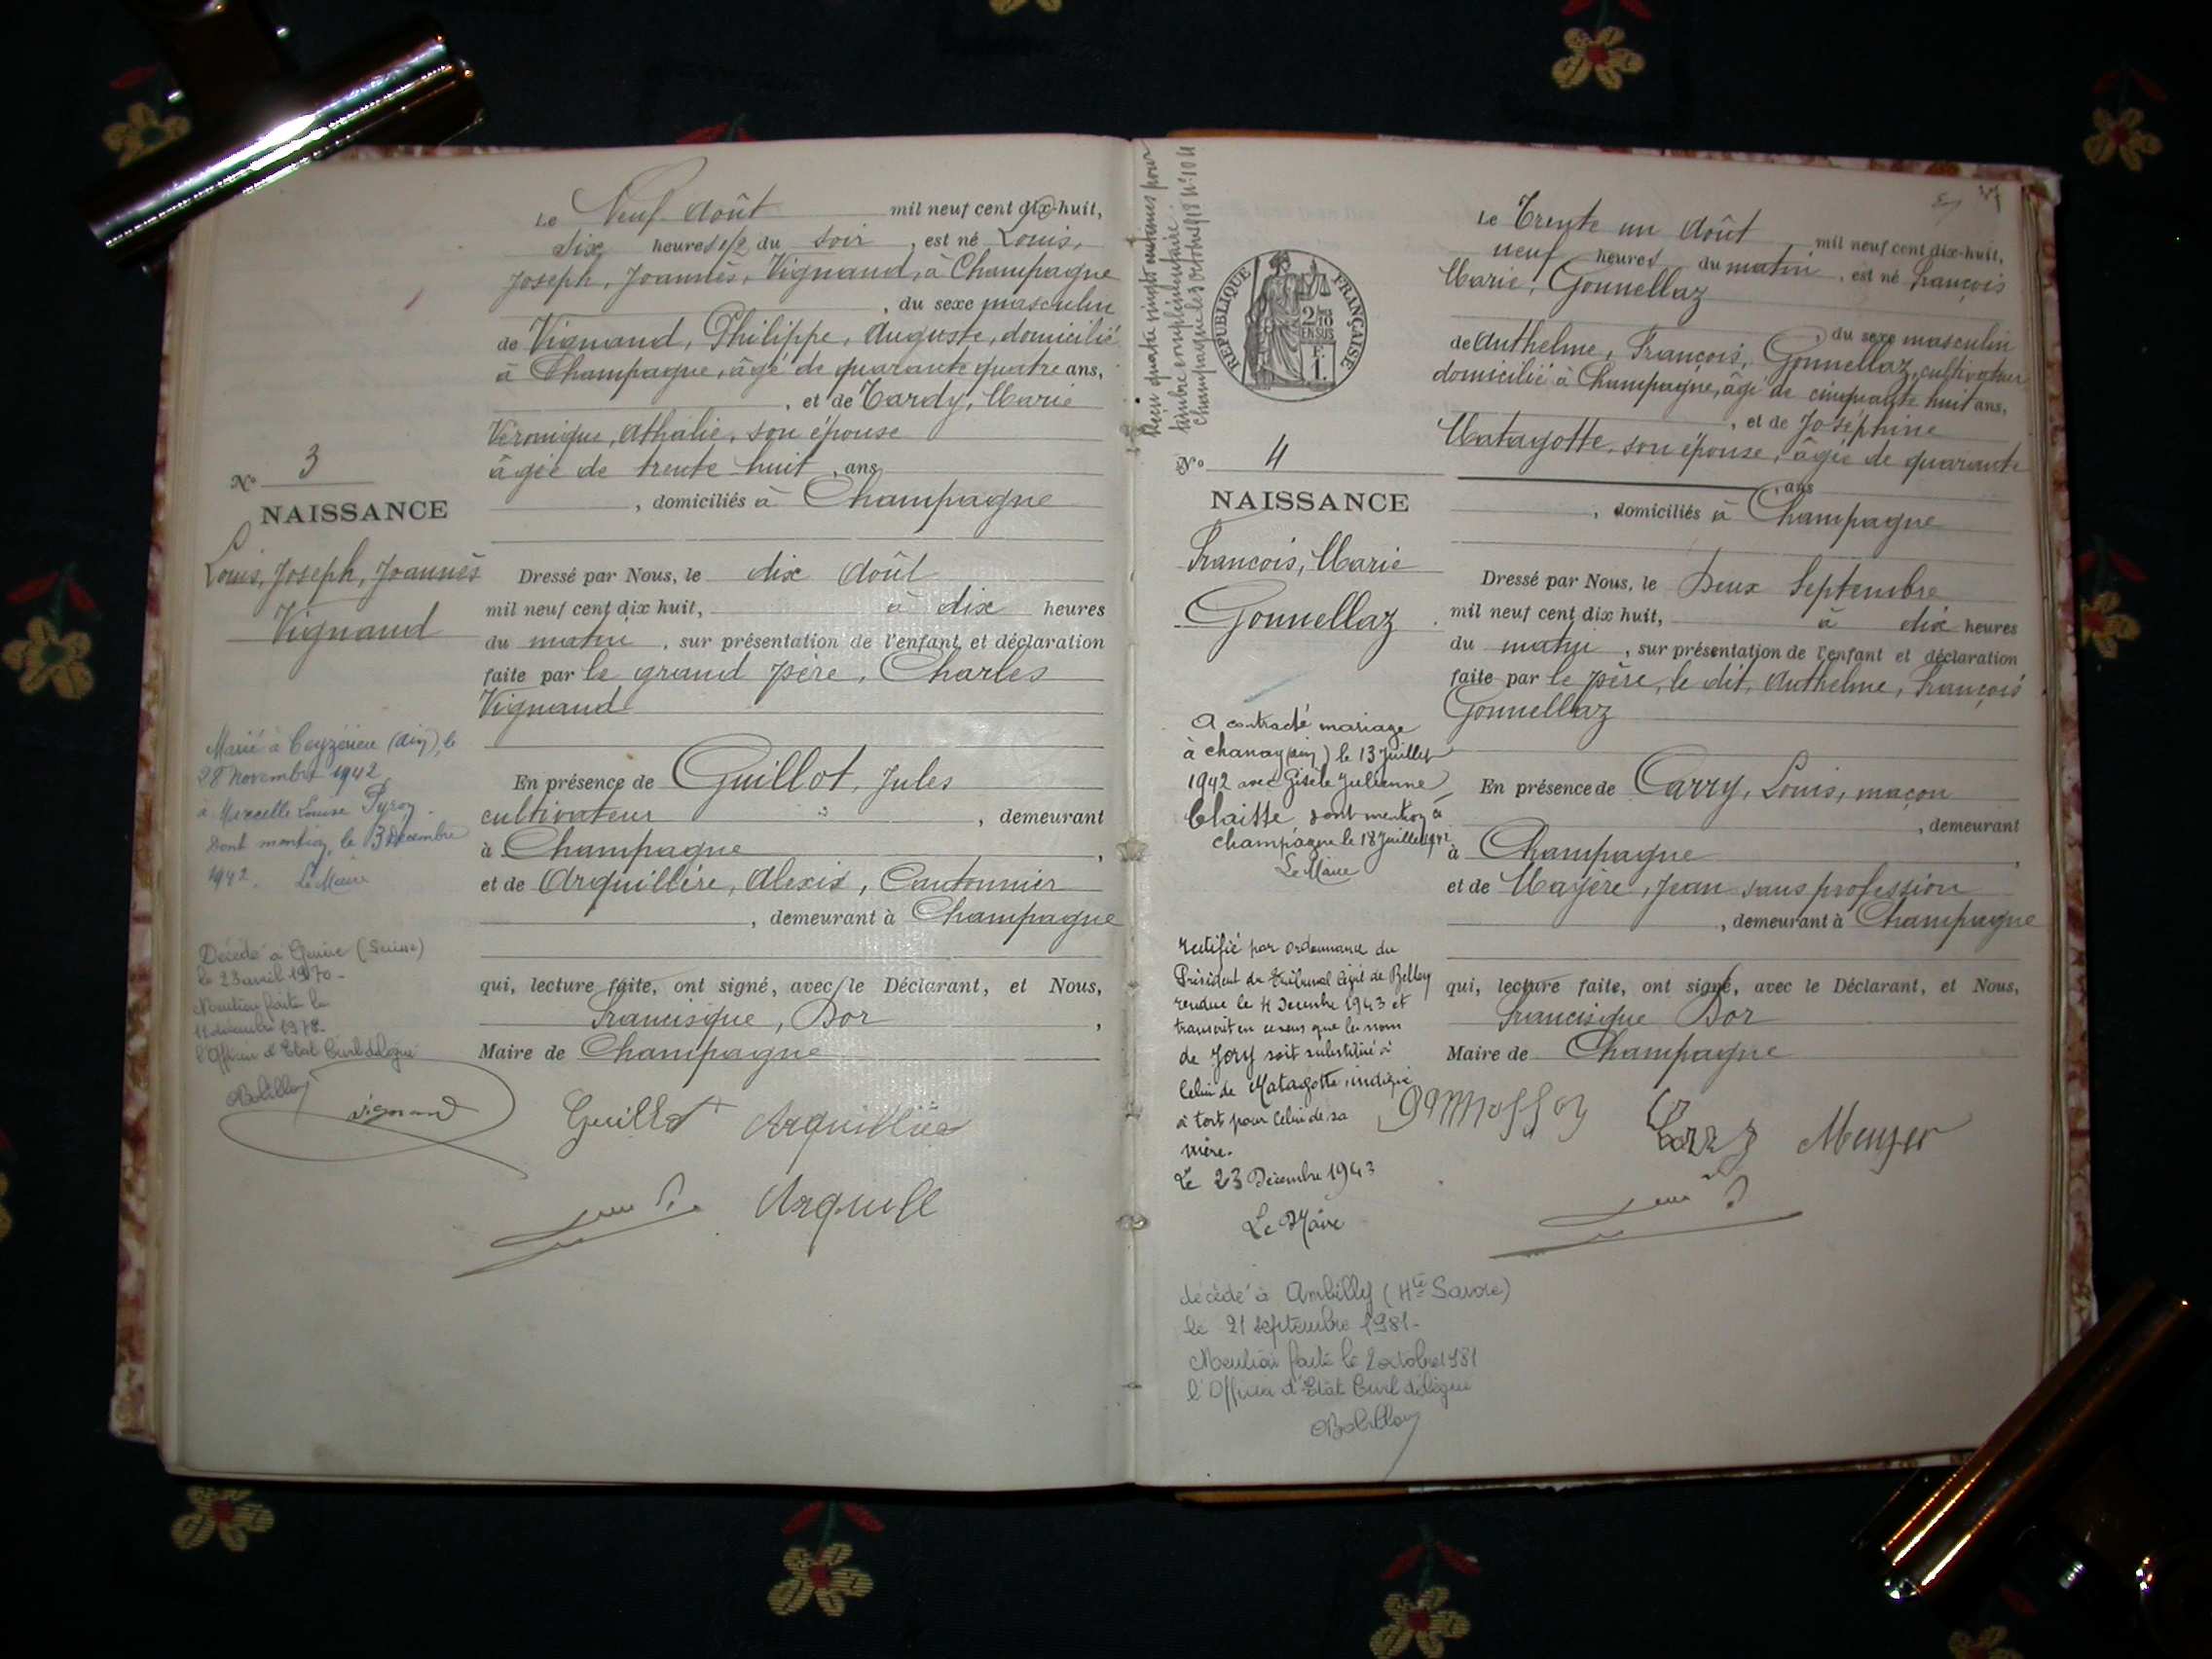 Le Neuf Août mil neuf cent dix-huit,
dix heures 1/2 du soir, est né Louis,
Joseph, Joannès, Vignand, à Champagne
, du sexe masculin
de Vignand, Philippe, Auguste, domicilié
à Champagne, âgé de quarante quatre ans,
, et de Tardy, Marie
Veronique, Athalie, son épouse
âgée de trente huit, ans
, domiciliés à Champagne
No 3
NAISSANCE
Louis, Joseph, Joannès
Vignand
Dressé par Nous, le dix Août
mil neuf cent dix huit, à dix heures
du matin, sur présentation de l'enfant et déclaration
faite par le grand père, Charles
Vignand
En présence de Guillot, Jules
cultivateur , demeurant
à Champagne,
et de Arquillère, Alexis, Cantonnier
, demeurant à Champagne
qui, lecture faite, ont signé, avec le Déclarant, et Nous,
Francisque, Dor,
Maire de Champagne
Marié à Ceyzérieu (Ain), le
28 Novembre 1942
à Marcelle Louise
Dont mention, le 3 Décembre
1942. Le Maire
Décédé à (Suisse)
le 23 avril 1970 -
Mention faite le
11 décembre 1972
l'Officier d'Etat Civil délégué
Vignand
Guillot Arquillière
Arquill
timbre complémentaire
No 4
REPUBLIQUE FRANÇAISE
2/10 EN SUS
F. 1.
NAISSANCE
François, Marie
Gonnellaz
Le Trente un Août mil neuf cent dix-huit,
neuf heures du matin, est né François
Marie, Gonnellaz
du sexe masculin
de Anthelme, François, Gonnellaz, cultivateur
domicilié à Champagne, âgé de cinquante huit ans,
, et de Joséphine
Matagotte, son épouse, âgée de quarante
, ans
, domiciliés à Champagne
Dressé par Nous, le Deux Septembre
mil neuf cent dix huit, à dix heures
du matin, sur présentation de l'enfant et déclaration
faite par le père, le dit, Anthelme, François
Gonnellaz
En présence de Carry, Louis, maçon
, demeurant
à Champagne,
et de Mayère, Jean sans profession
, demeurant à Champagne
qui, lecture faite, ont signé, avec le Déclarant, et Nous,
Francisque Dor
Maire de Champagne
A contracté mariage
à chanay (ain) le 13 Juillet
1942 avec Gisèle Julienne
Claitte dont mention à
champagne le 18 Juillet 1942
Le Maire
rectifié par ordonnance du
Président du Tribunal Civil de Belley
rendue le 4 Decembre 1943 et
transcrit en ce sens que le nom
de Jory soit substitué à
celui de Matagotte, indiqué
à tort pour celui de sa
mère.
Le 23 Décembre 1943
Le Maire
Carry
décédé à Ambilly (Hte Savoie)
le 21 septembre 1981 -
Mention faite le 2 octobre 1981
l'Officier d'Etat Civil délégué